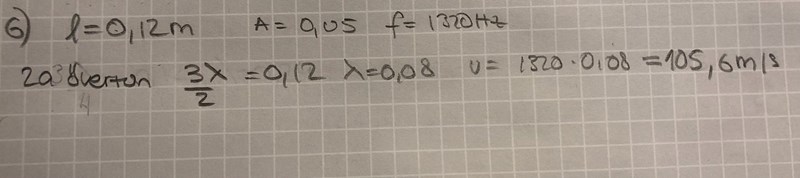 6) l=0,12m A=0,05 f=1320Hz
2a överton 3λ/2 =0,12 λ=0,08 v= 1320·0,08 =105,6m/s